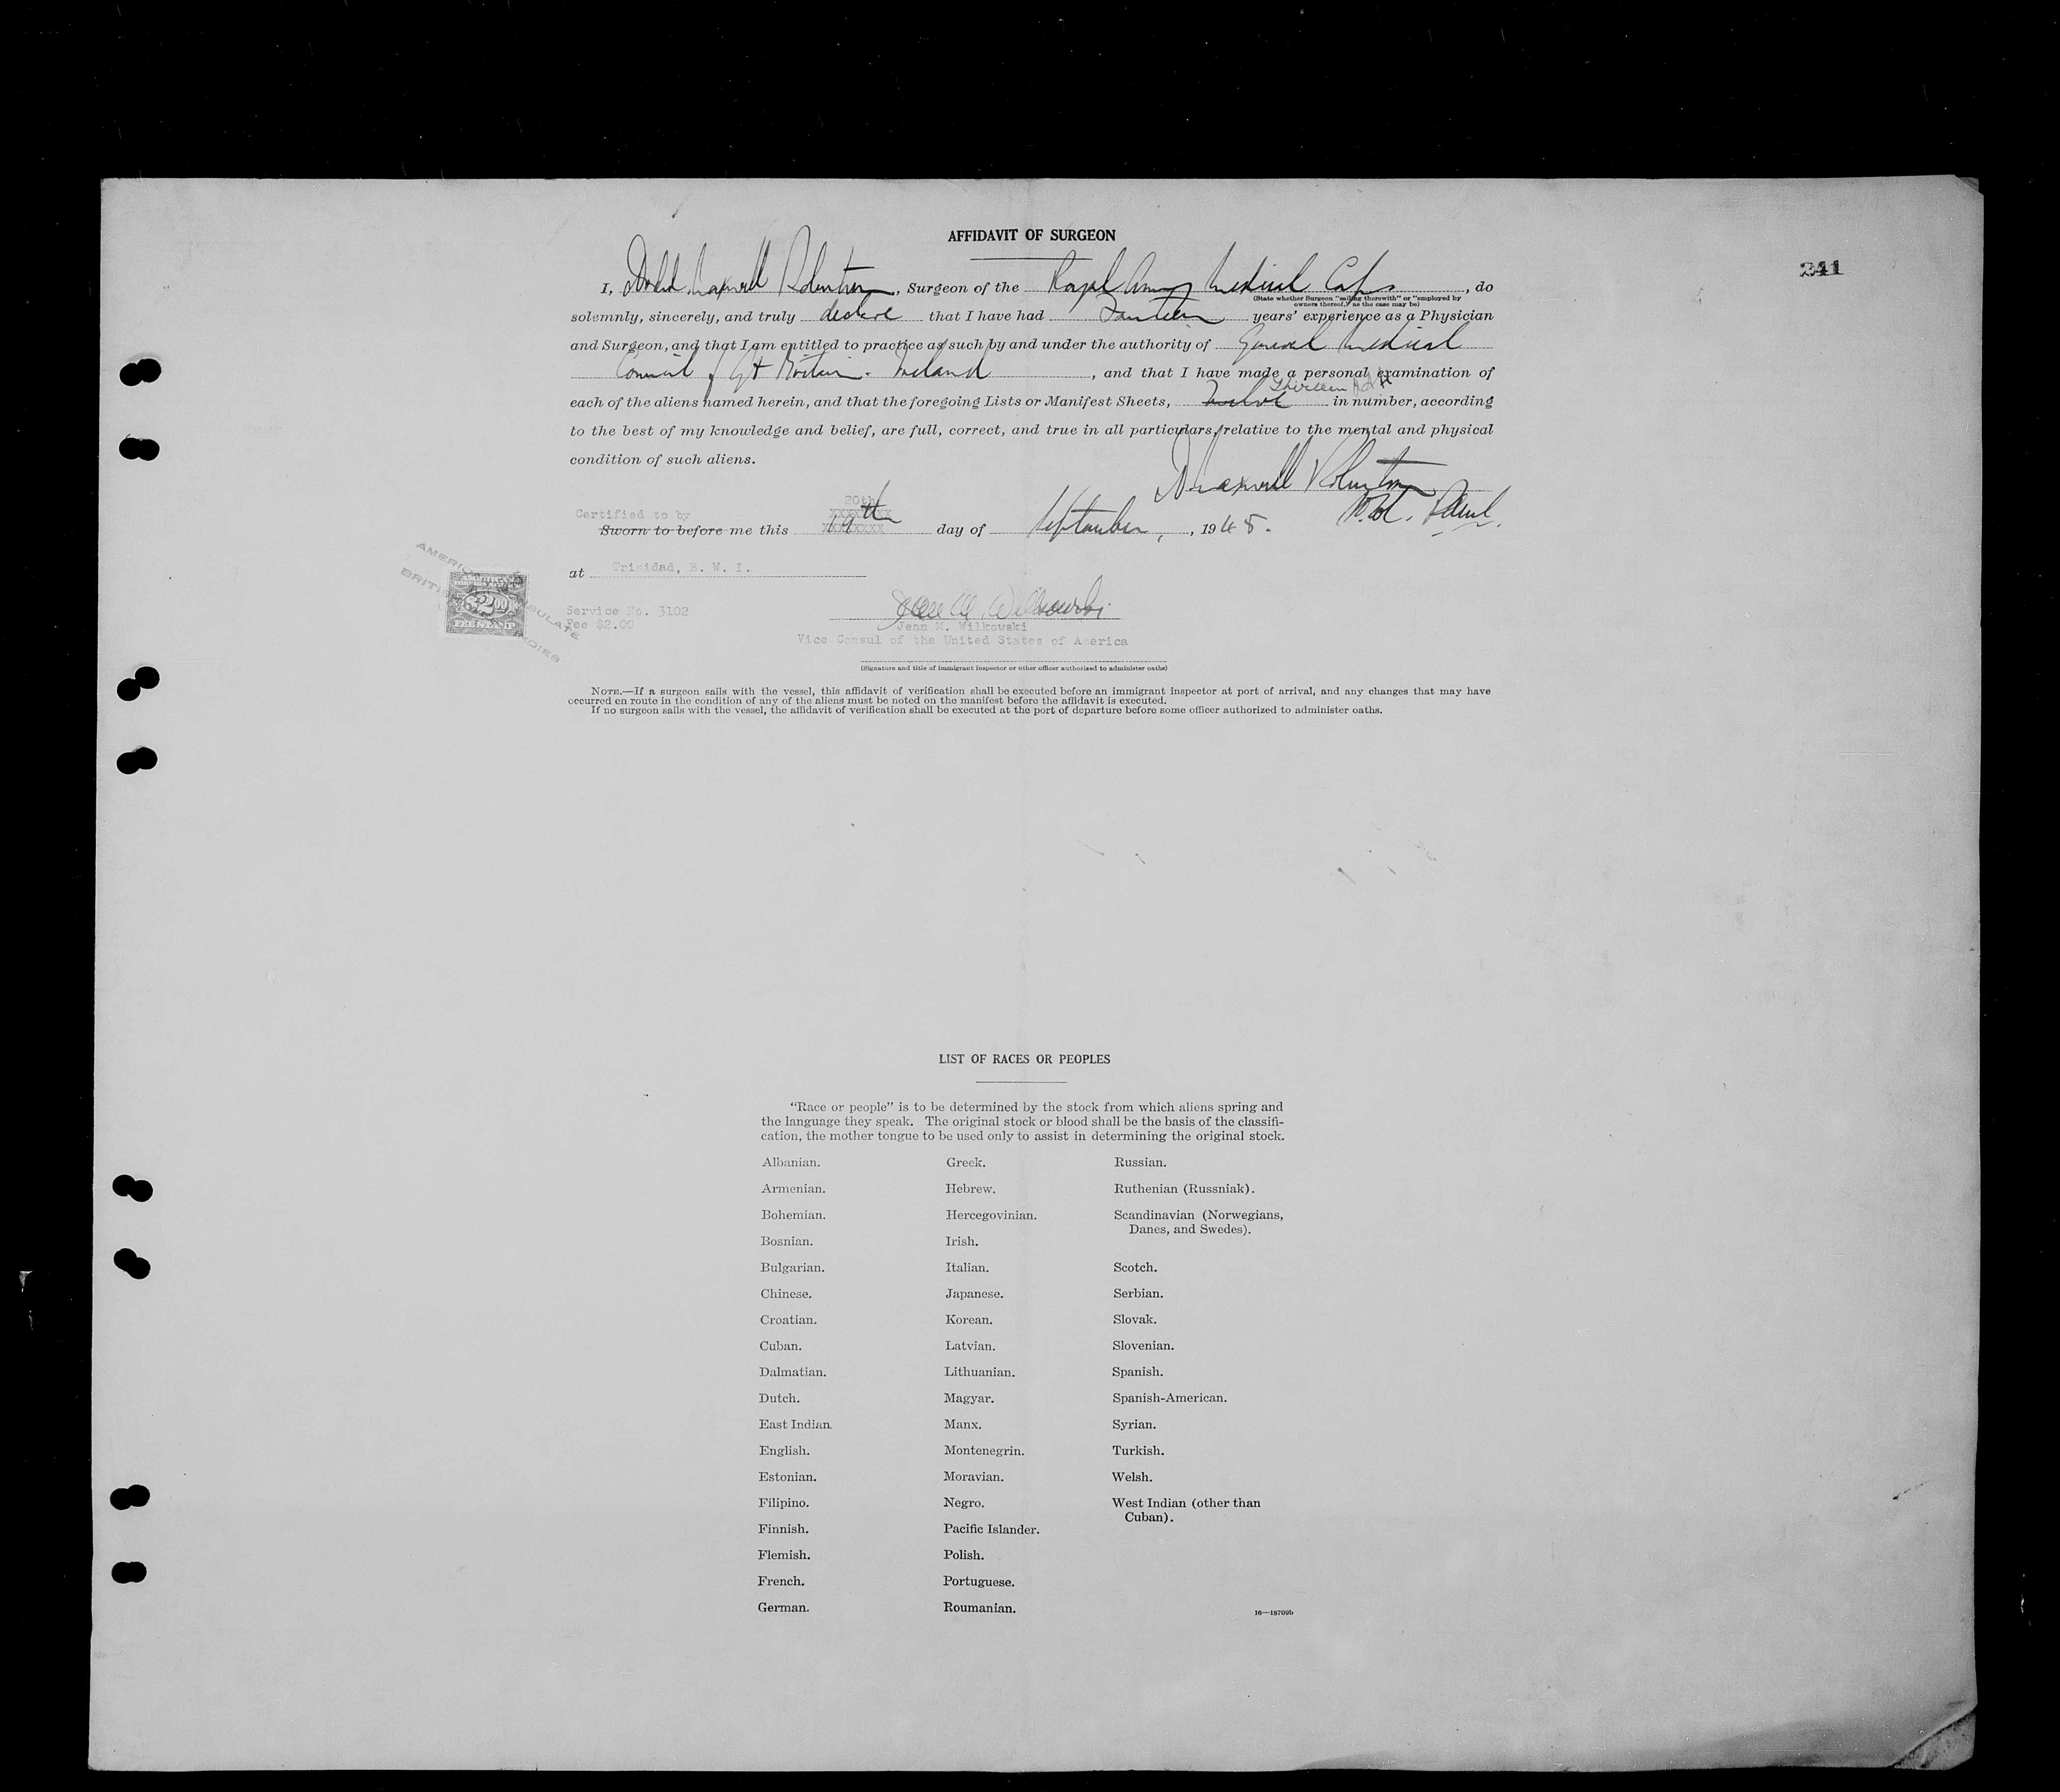 AFFIDAVIT OF SURGEON
241
I, Maxwell Robertson, Surgeon of the Royal Army Medical Corps, do
(State whether Surgeon "sailing therewith" or "employed by
owners thereof," as the case may be)
solemnly, sincerely, and truly declare that I have had years' experience as a Physician
and Surgeon, and that I am entitled to practice as such by and under the authority of General Medical
Council of Gt Britain. Ireland, and that I have made a personal examination of
Thirteen
each of the aliens named herein, and that the foregoing Lists or Manifest Sheets, Twelve in number, according
to the best of my knowledge and belief, are full, correct, and true in all particulars, relative to the mental and physical
condition of such aliens.
Maxwell Robertson
20th
Certified to by
Sworn to before me this 19th day of September, 1945.
at Trinidad, B. W. I.
AMERICAN
$2.00
FEE STAMP
Service No. 3102
Fee $2.00
Jean M. Wilkowski
Jean M. Wilkowski
Vice Consul of the United States of America
(Signature and title of immigrant inspector or other officer authorized to administer oaths)
NOTE.—If a surgeon sails with the vessel, this affidavit of verification shall be executed before an immigrant inspector at port of arrival, and any changes that may have
occurred en route in the condition of any of the aliens must be noted on the manifest before the affidavit is executed.
If no surgeon sails with the vessel, the affidavit of verification shall be executed at the port of departure before some officer authorized to administer oaths.
LIST OF RACES OR PEOPLES
"Race or people" is to be determined by the stock from which aliens spring and
the language they speak. The original stock or blood shall be the basis of the classifi-
cation, the mother tongue to be used only to assist in determining the original stock.
Albanian.
Armenian.
Bohemian.
Bosnian.
Bulgarian.
Chinese.
Croatian.
Cuban.
Dalmatian.
Dutch.
East Indian.
English.
Estonian.
Filipino.
Finnish.
Flemish.
French.
German.
Greek.
Hebrew.
Hercegovinian.
Irish.
Italian.
Japanese.
Korean.
Latvian.
Lithuanian.
Magyar.
Manx.
Montenegrin.
Moravian.
Negro.
Pacific Islander.
Polish.
Portuguese.
Roumanian.
Russian.
Ruthenian (Russniak).
Scandinavian (Norwegians,
Danes, and Swedes).
Scotch.
Serbian.
Slovak.
Slovenian.
Spanish.
Spanish-American.
Syrian.
Turkish.
Welsh.
West Indian (other than
Cuban).
16—18709b